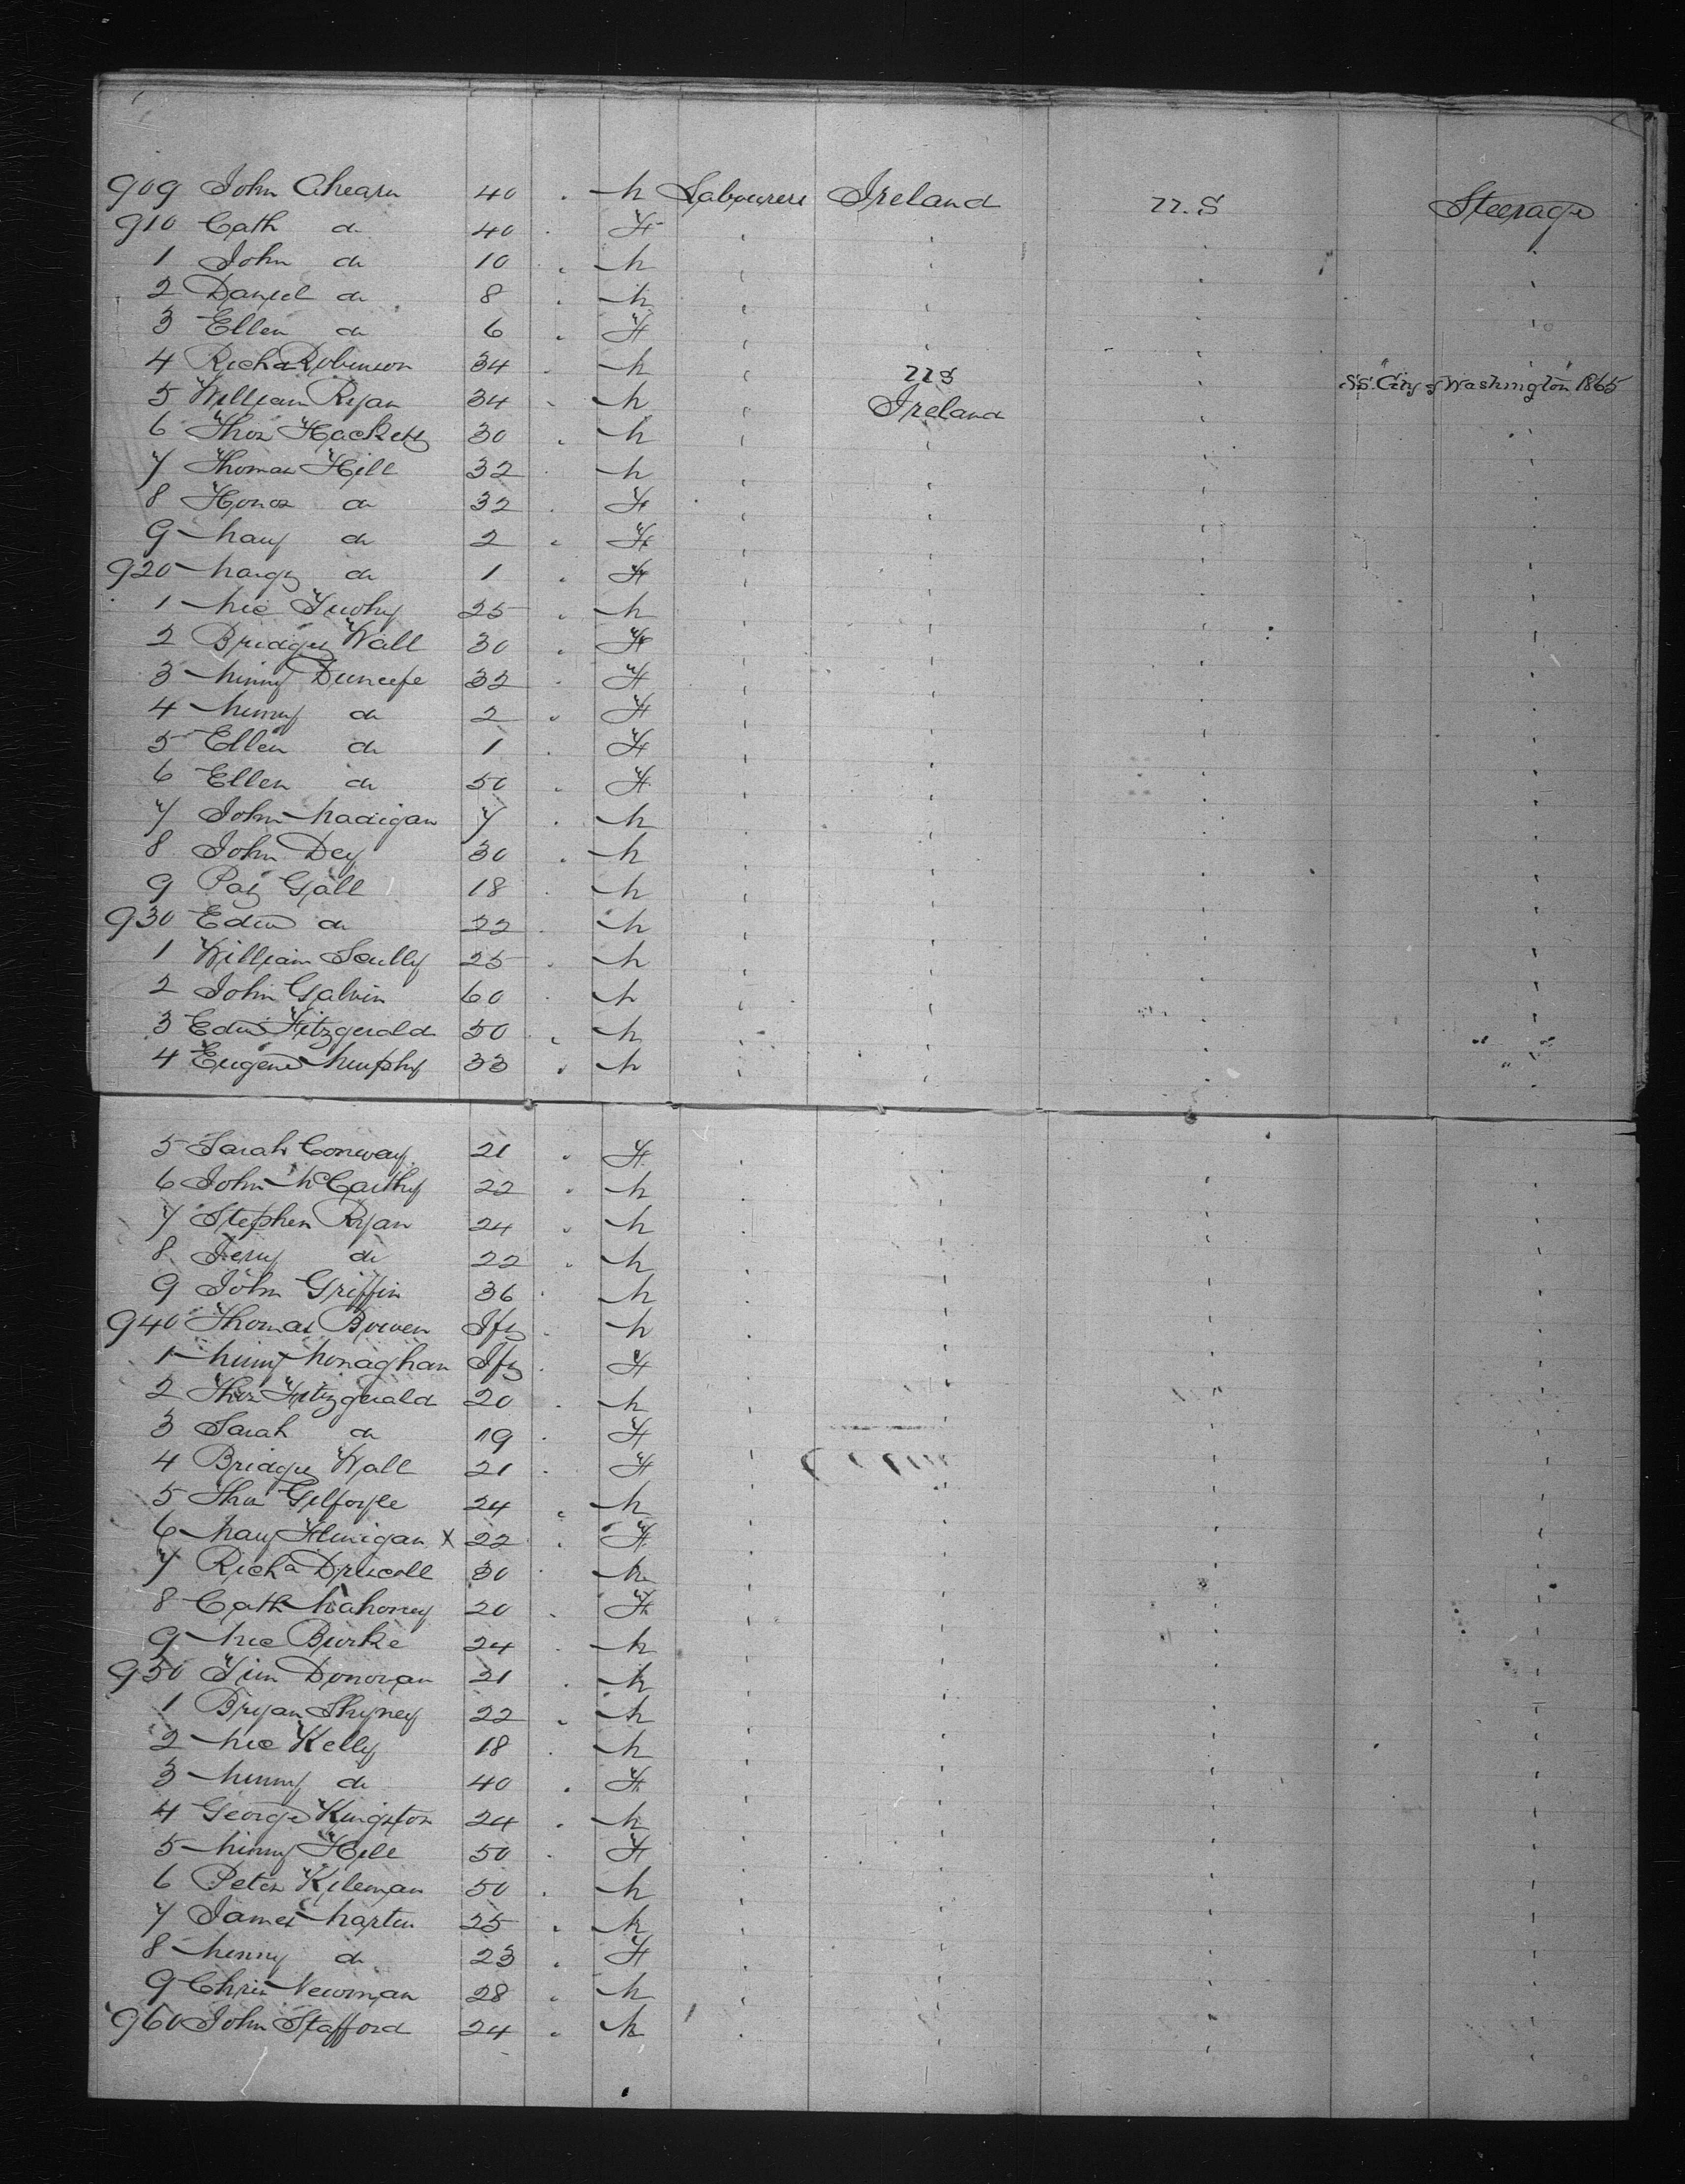 909 John Ahearn 40 " M Labourers Ireland U.S Steerage
910 Cath do 40 " F " " " "
1 John do 10 " M " " " "
2 Daniel do 8 " M " " " "
3 Ellen do 6 " F " " " "
4 Richd Robinson 34 " M " U S " SS "City of Washington" 1865
5 William Ryan 34 " M " Ireland " "
6 Thos Hackett 30 " M " " " "
7 Thomas Hill 32 " M " " " "
8 Honor do 32 " F " " " "
9 Mary do 2 " F " " " "
920 Margt do 1 " F " " " "
1 Mic 25 " M " " " "
2 Bridget Wall 30 " F " " " "
3 Minny 32 " F " " " "
4 Minny do 2 " F " " " "
5 Ellen do 1 " F " " " "
6 Ellen do 50 " F " " " "
7 John Madigan 7 " M " " " "
8 John Dey 30 " M " " " "
9 Pat Gall 18 " M " " " "
930 Edwd do 22 " M " " " "
1 William Scully 25 " M " " " "
2 John Galvin 60 " M " " " "
3 Edwd Fitzgerald 50 " M " " " "
4 Eugene Murphy 33 " M " " " "
5 Sarah Conway 21 " F " " " "
6 John McCarthy 22 " M " " " "
7 Stephen Ryan 24 " M " " " "
8 Jerry do 22 " M " " " "
9 John Griffin 36 " M " " " "
940 Thomas Bowen Ift " M " " " "
1 Minny Monaghan Ift " F " " " "
2 Thos Fitzgerald 20 " M " " " "
3 Sarah do 19 " F " " " "
4 Bridget Wall 21 " F " " " "
5 Thos Gilfoyle 24 " M " " " "
6 Mary Flinigan X 22 " F " " " "
7 Richd Driscoll 30 " M " " " "
8 Cath Mahoney 20 " F " " " "
9 Mic Burke 24 " M " " " "
950 Tim Donovan 21 " M " " " "
1 Bryan Shyney 22 " M " " " "
2 Mic Kelly 18 " M " " " "
3 Minny do 40 " F " " " "
4 George Kingston 24 " M " " " "
5 Minny Hill 50 " F " " " "
6 Peter Kileman 50 " M " " " "
7 James Martin 25 " M " " " "
8 Minny do 23 " F " " " "
9 Chris Newman 28 " M " " " "
960 John Stafford 24 " M " " " "